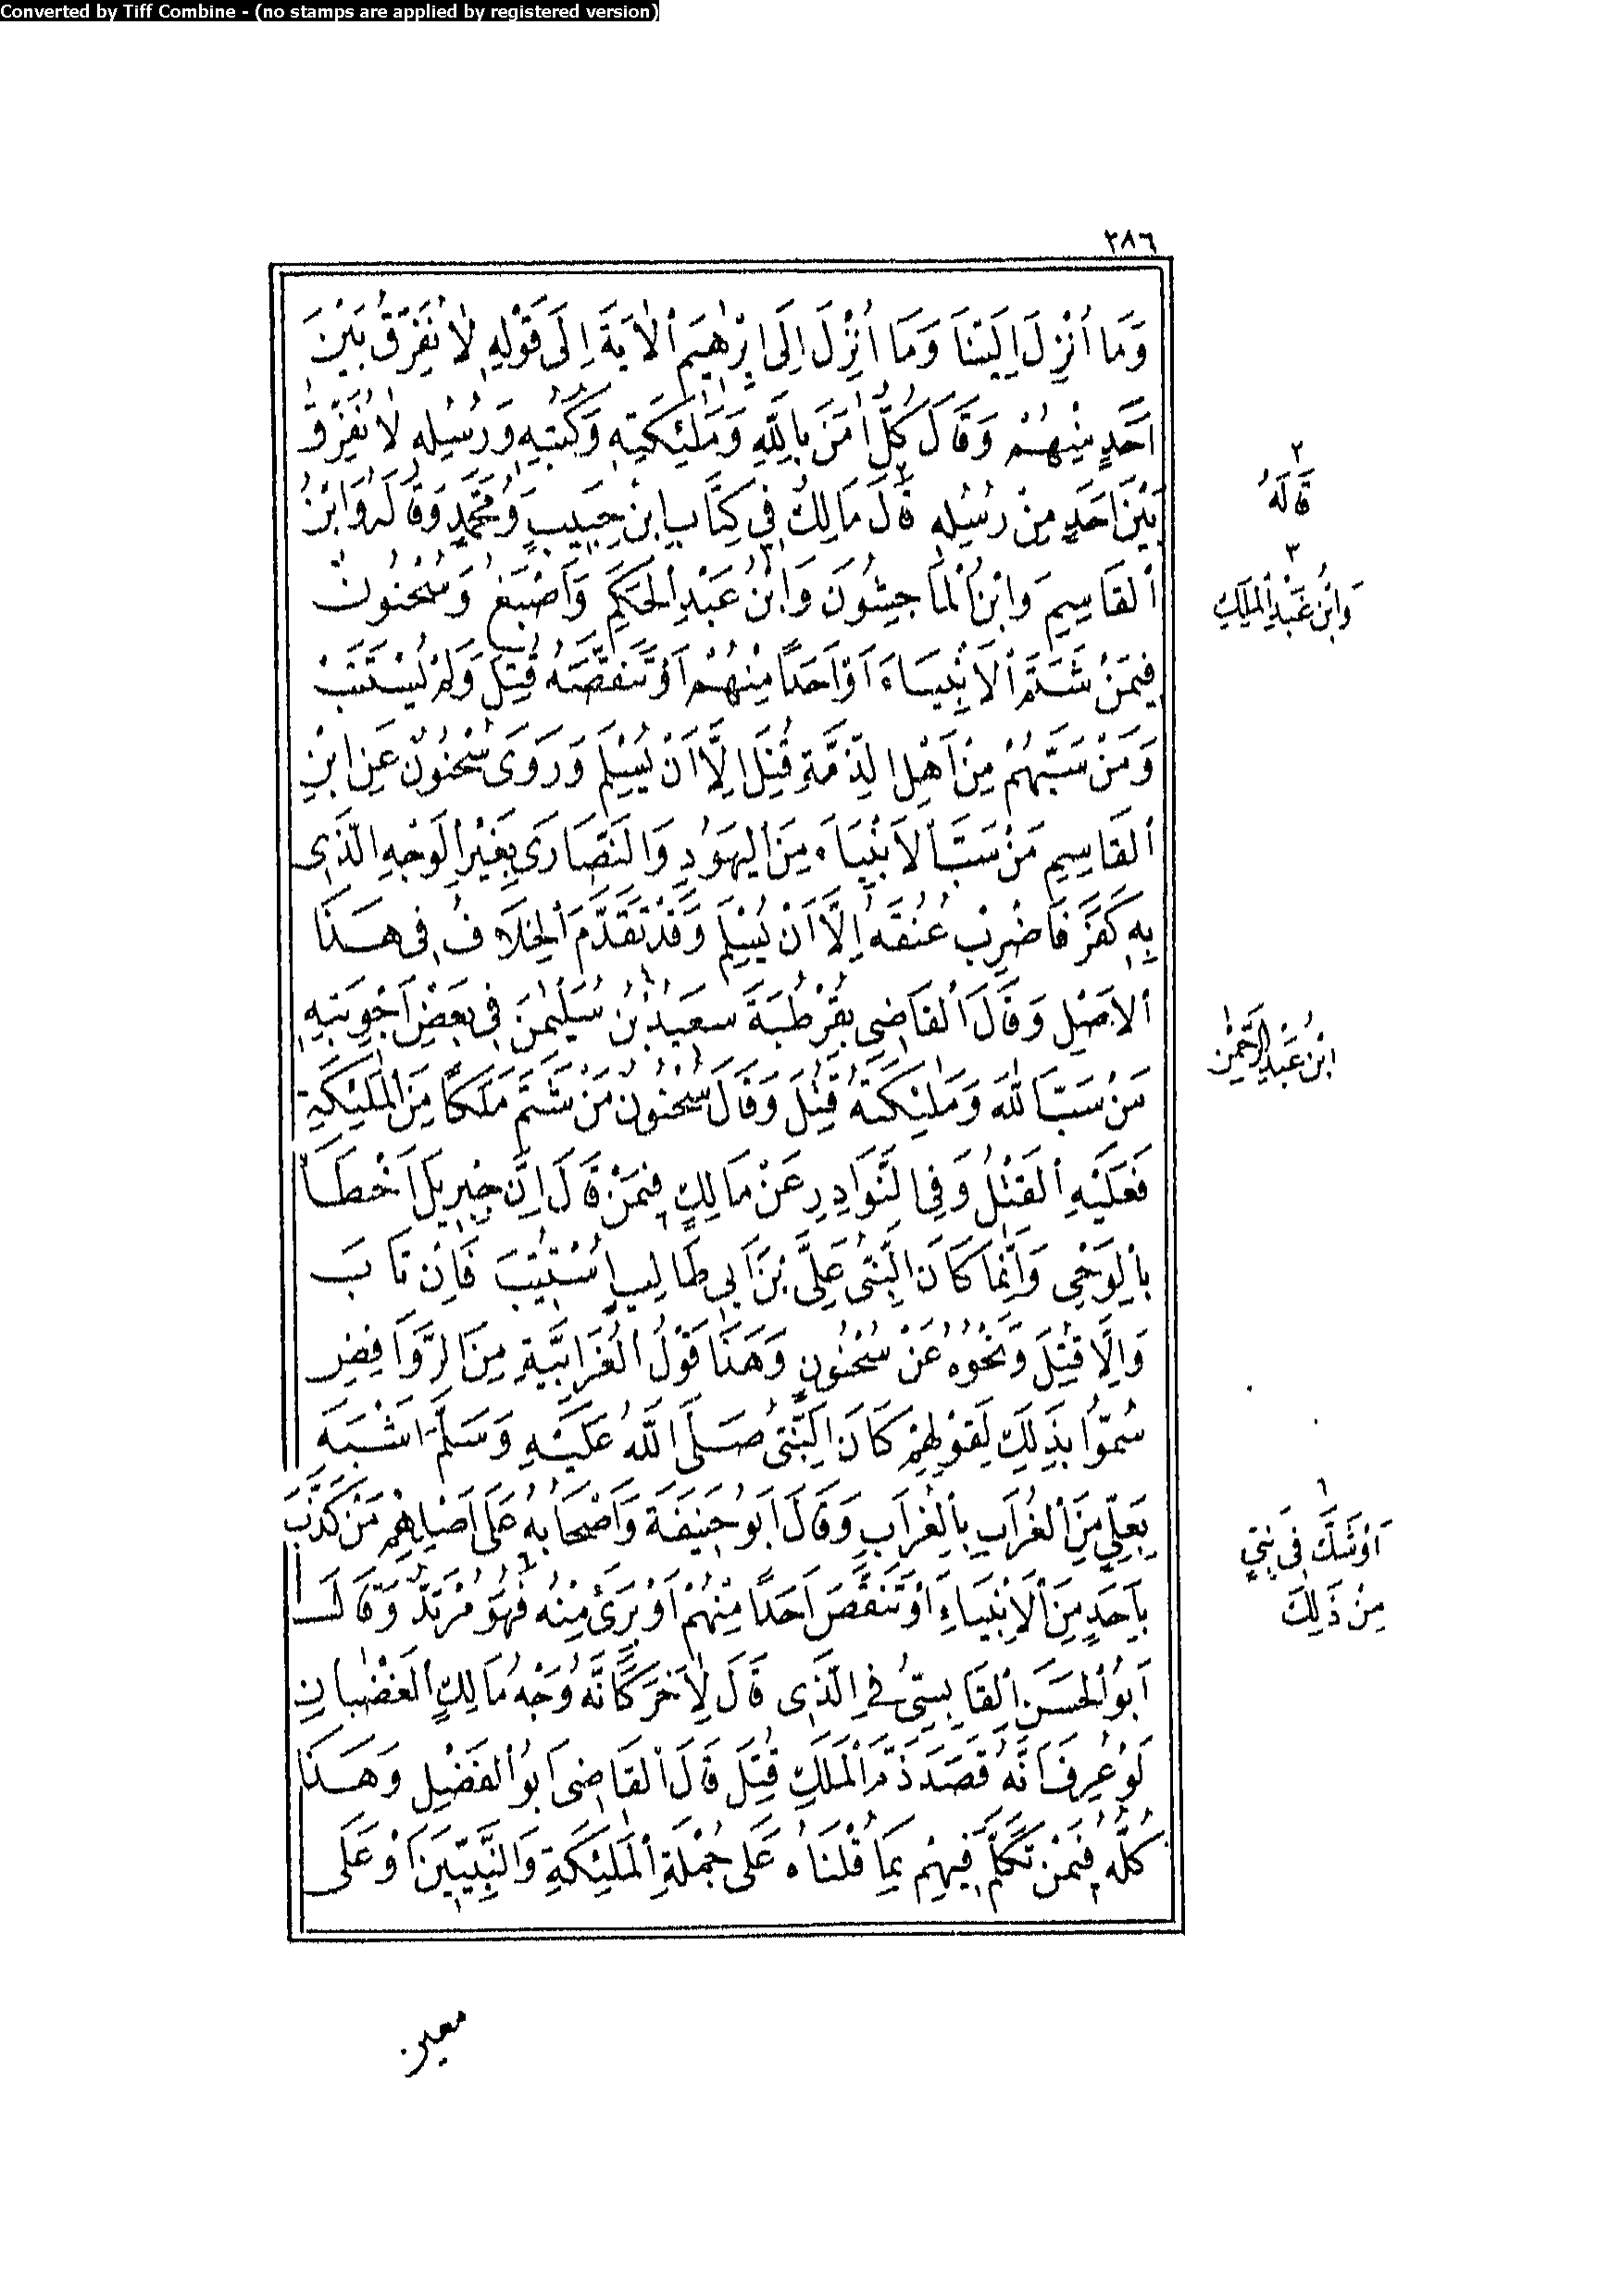 Converted by Tiff Combine - (no stamps are applied by registered version)
٢٨٦
وَمَا أُنْزِلَ اِلَيْنَا وَمَا أُنْزِلَ اِلَى اِبْرٰهِيمَ ٱلْاٰيَةَ اِلَى قَوْلِهِ لَا نُفَرِّقُ بَيْنَ
اَحَدٍ مِنْهُمْ وَقَالَ كُلٌّ اٰمَنَ بِاللّٰهِ وَمَلٰئِكَتِهِ وَكُتُبِهِ وَرُسُلِهِ لَا نُفَرِّقُ
بَيْنَ اَحَدٍ مِنْ رُسُلِهِ قَالَ مَالِكٌ فِي كِتَابِ ابْنِ حَبِيبٍ وَمُحَمَّدٍ وَقَالَهُ وَابْنُ
ٱلْقَاسِمِ وَابْنُ ٱلْمَاجِشُونَ وَابْنُ عَبْدِ ٱلْحَكَمِ وَاَصْبَغُ وَسُحْنُونٌ
فِيمَنْ شَتَمَ ٱلْاَنْبِيَاءَ اَوْ اَحَدًا مِنْهُمْ اَوْ تَنَقَّصَهُ قُتِلَ وَلَمْ يُسْتَتَبْ
وَمَنْ سَبَّهُمْ مِنْ اَهْلِ الذِّمَّةِ قُتِلَ اِلَّا اَنْ يُسْلِمَ وَرَوَى سُحْنُونٌ عَنِ ابْنِ
ٱلْقَاسِمِ مَنْ سَبَّ ٱلْاَنْبِيَاءَ مِنَ ٱلْيَهُودِ وَالنَّصَارَى بِغَيْرِ ٱلْوَجْهِ الَّذِى
بِهِ كَفَرَ فَاضْرِبْ عُنُقَهُ اِلَّا اَنْ يُسْلِمَ وَقَدْ تَقَدَّمَ ٱلْخِلَافُ فِى هٰذَا
ٱلْاَصْلِ وَقَالَ ٱلْقَاضِى بِقُرْطُبَةَ سَعِيدُ بْنُ سُلَيْمٰنَ فِى بَعْضِ اَجْوِبَتِهِ
مَنْ سَبَّ اللّٰهَ وَمَلٰئِكَتَهُ قُتِلَ وَقَالَ سُحْنُونٌ مَنْ شَتَمَ مَلَكًا مِنَ ٱلْمَلٰئِكَةِ
فَعَلَيْهِ ٱلْقَتْلُ وَفِى النَّوَادِرِ عَنْ مَالِكٍ فِيمَنْ قَالَ اِنَّ جِبْرِيلَ اَخْطَأَ
بِٱلْوَحْىِ وَاِنَّمَا كَانَ النَّبِىُّ عَلِىَّ بْنَ اَبِى طَالِبٍ اُسْتُتِيبَ فَاِنْ تَابَ
وَاِلَّا قُتِلَ وَنَحْوُهُ عَنْ سُحْنُونٍ وَهٰذَا قَوْلُ ٱلْغُرَابِيَّةِ مِنَ الرَّوَافِضِ
سُمُّوا بِذٰلِكَ لِقَوْلِهِمْ كَانَ النَّبِىُّ صَلَّى اللّٰهُ عَلَيْهِ وَسَلَّمَ اَشْبَهَ
بِعَلِىٍّ مِنَ ٱلْغُرَابِ بِٱلْغُرَابِ وَقَالَ اَبُو حَنِيفَةَ وَاَصْحَابُهُ عَلَى اَصْلِهِمْ مَنْ كَذَّبَ
بِاَحَدٍ مِنَ ٱلْاَنْبِيَاءِ اَوْ تَنَقَّصَ اَحَدًا مِنْهُمْ اَوْ بَرِئَ مِنْهُ فَهُوَ مُرْتَدٌّ وَقَالَ
اَبُو ٱلْحَسَنِ ٱلْقَابِسِىُّ فِى الَّذِى قَالَ لِاٰخَرَ كَاَنَّهُ وَجْهُ مَالِكٍ ٱلْغَضْبَانِ
لَوْ عُرِفَ اَنَّهُ قَصَدَ ذَمَّ ٱلْمَلَكِ قُتِلَ قَالَ ٱلْقَاضِى اَبُو ٱلْفَضْلِ وَهٰذَا
كُلُّهُ فِيمَنْ تَكَلَّمَ فِيهِمْ بِمَا قُلْنَاهُ عَلَى جُمْلَةِ ٱلْمَلٰئِكَةِ وَالنَّبِيِّينَ اَوْ عَلَى
٢
قَالَهُ
٣
وَابْنُ عَبْدِ ٱلْمَلِكِ
ابْنِ عَبْدِ الرَّحْمٰنِ
٦
اَوْ شَكَّ فِى شَىْءٍ
مِنْ ذٰلِكَ
معين